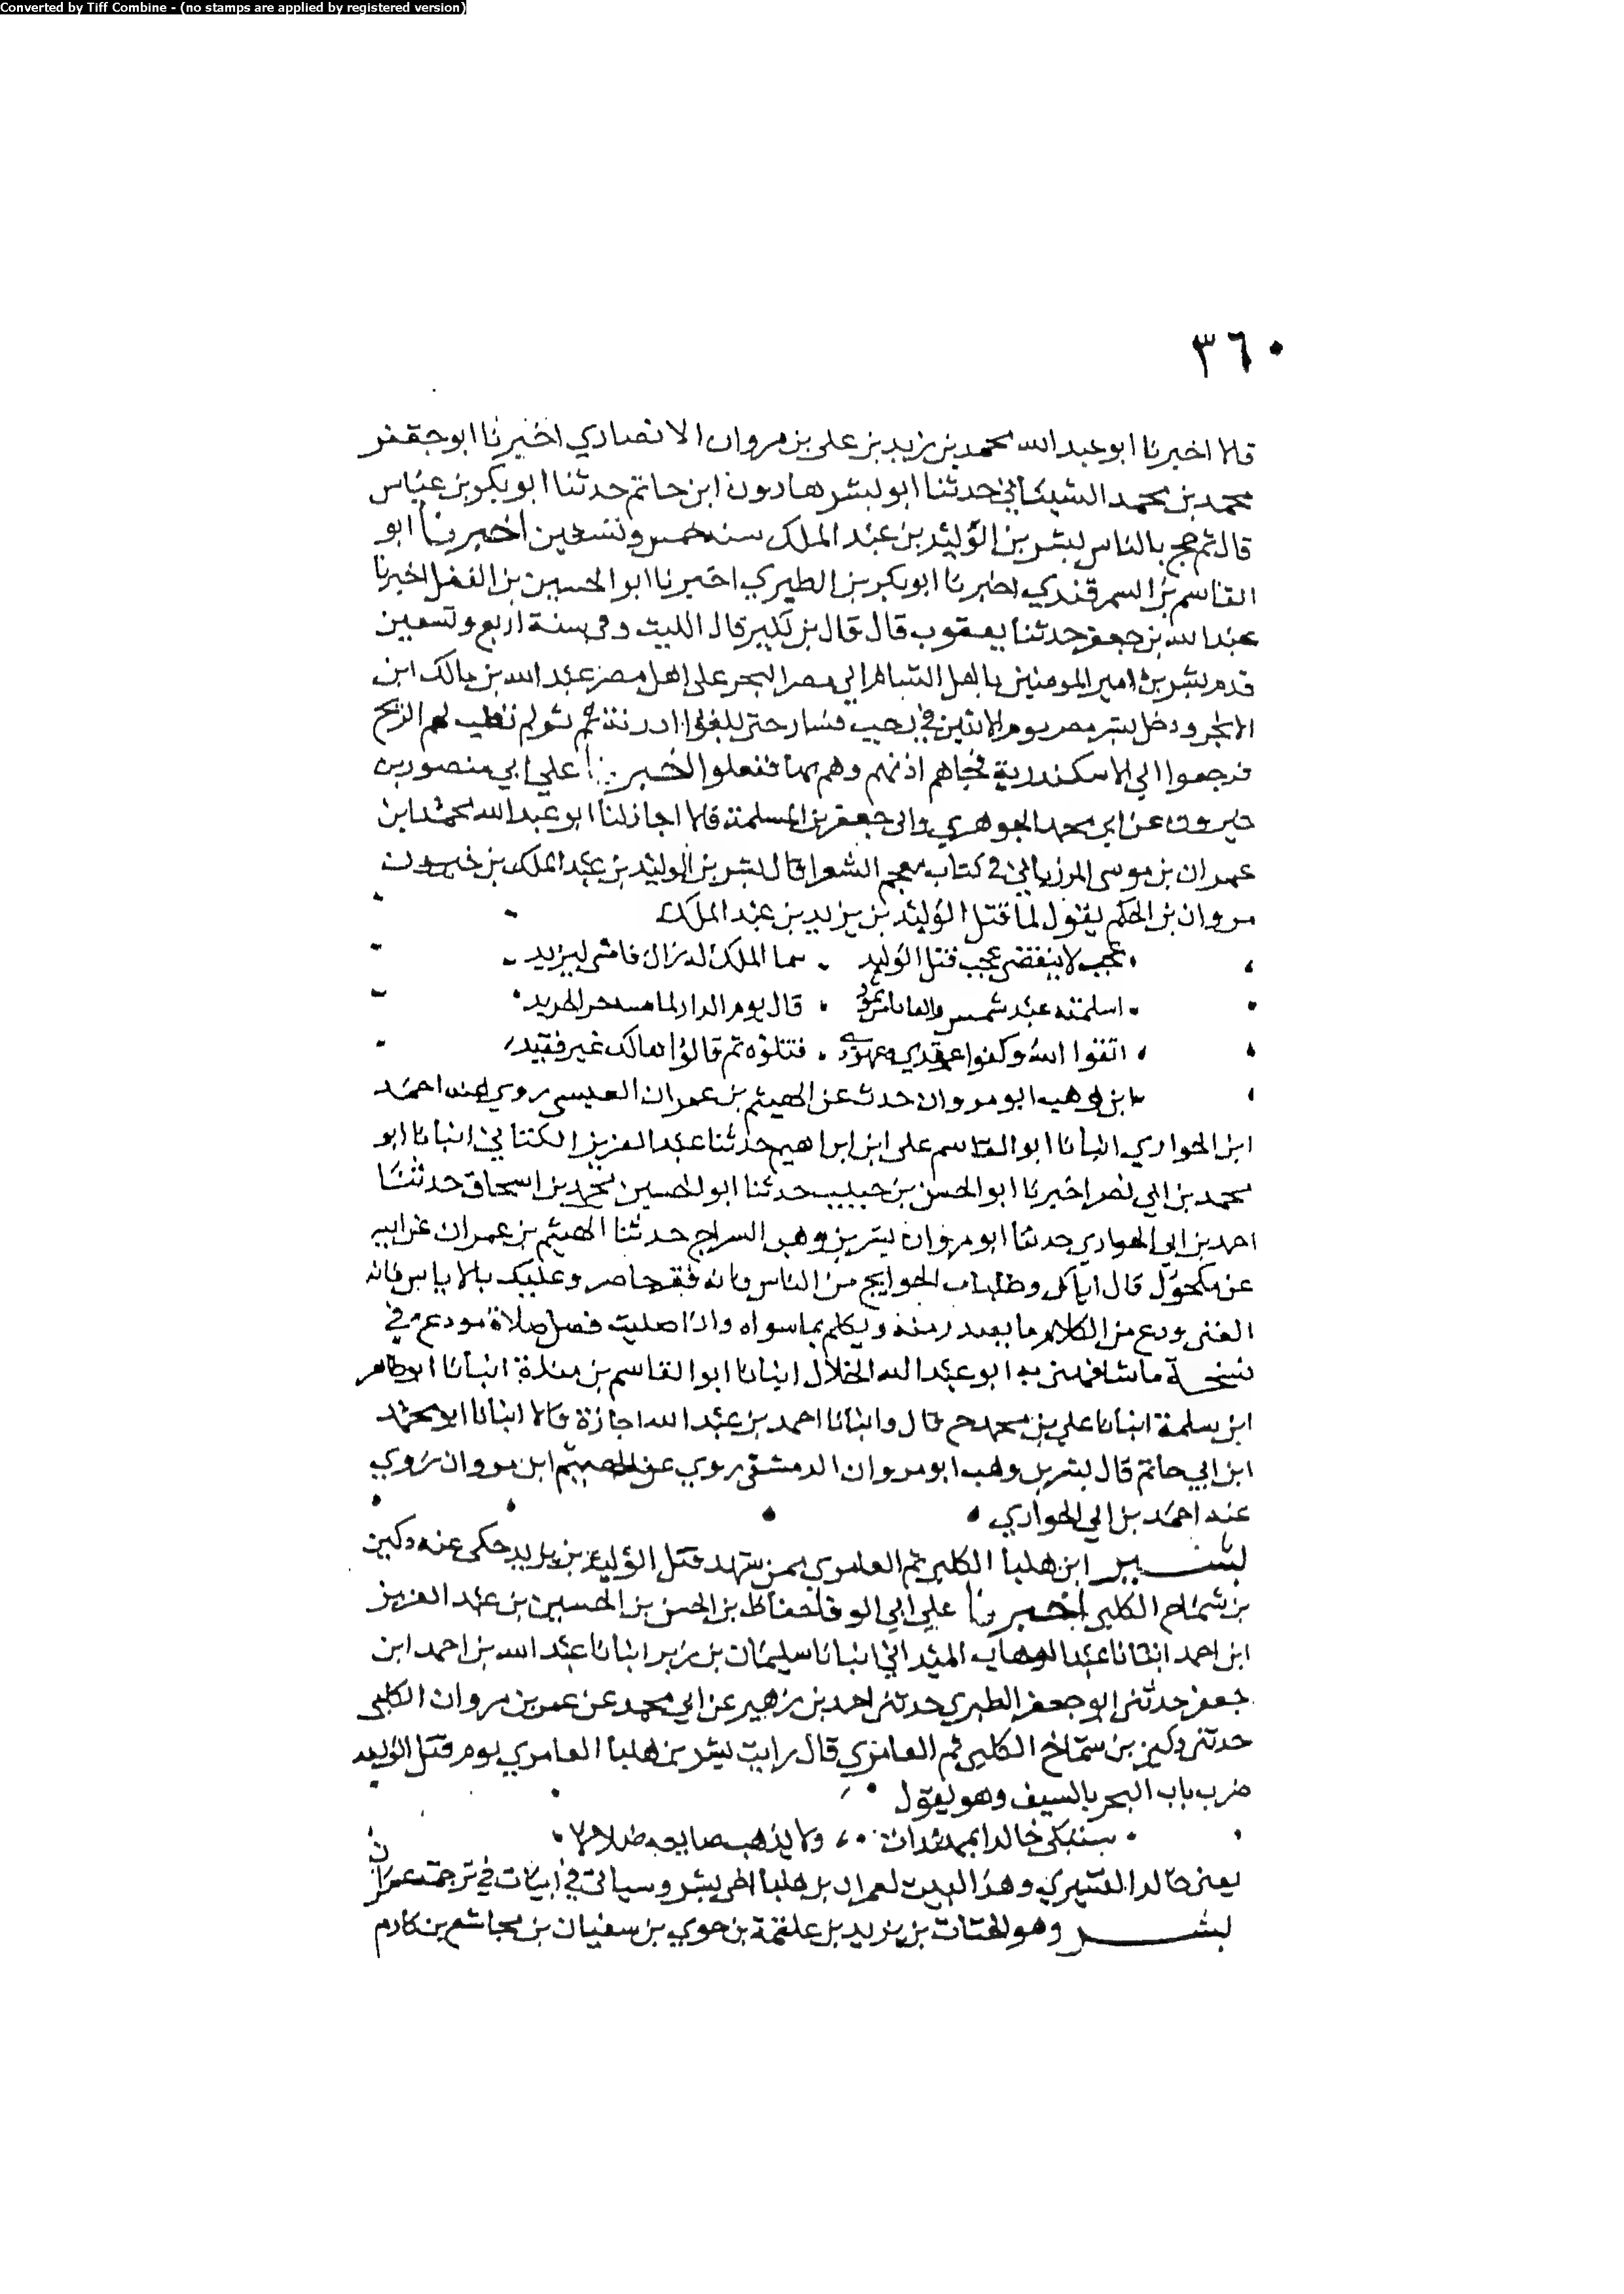 Converted by Tiff Combine - (no stamps are applied by registered version)
٣٦٠
قالا اخبرنا ابو عبد الله محمد بن زيد بن على بن مروان الانصاري اخبرنا ابو جعفر
محمد بن محمد الشيباني حدثنا ابو بشر هارون ابن حاتم حدثنا ابو بكر بن عياش
قال ثم حج بالناس بشر بن الوليد بن عبد الملك سنه خمس وتسعين اخبرنا ابو
القاسم بن السمرقندي اخبرنا ابو بكر بن الطبري اخبرنا ابو الحسين بن الفضل اخبرنا
عبد الله بن جعفر حدثنا يعقوب قال قال بن بكير قال الليث وفي سنة اربع وتسعين
قدم بشر بن امير المومنين باهل الشام الي مصر البحر على اهل مصر عبد الله بن مالك ابن
الابجر ودخل بشر مصر يوم الاثنين في رجب فسار حتى بلغوا ادرنة ثم لم تطيب لهم الريح
فرجعوا الي الاسكندرية فجاهم اذنهم وهم بها فقفلوا اخبرنا علي ابي منصور بن
خيرون عن ابي محمد الجوهري وابى جعفر بن المسلمة قالا اجاز لنا ابو عبد الله محمد ابن
عمران بن موسى المرزباني في كتاب معجم الشعرا قال بشر بن الوليد بن عبد الملك بن
مروان بن الحكم يقول لما قتل الوليد بن يزيد بن عبد الملك
عجب لا ينقضى عجب قتل الوليد سما الملك فامشى ليزيد
اسلمته عبد شمس قال يوم الدار لما
اتقوا الله وكفوا عقدي وعهودي فتلوه ثم قالوا هالك غير فقيد
ابن وهب ابو مروان حدث عن الهيثم بن عمران العبسى روي عنه احمد
ابن الحواري انبانا ابو القاسم على ابن ابراهيم حدثنا عبد العزيز الكتاني انبانا ابو
محمد بن ابي نصر اخبرنا ابو الحسن بن حبيب حدثنا ابو الحسين محمد بن اسحاق حدثنا
احمد بن ابي الحواري حدثنا ابو مروان بشر بن وهب السراج حدثنا الهيثم بن عمران عن ابيه
عن مكحول قال اياك وطلبات الحوايج من الناس فانه فقر حاضر وعليك بالاياس فانه
الغنى ودع من الكلام ما يعتذر منه وتكلم بما سواه واذا صليت فصل صلاة مودع في
نسخة ما شافهني به ابو عبد الله الخلال انبانا ابو القاسم بن مندة انبانا ابو طاهر
ابن سلمة انبانا علي بن محمد ح قال وانبانا احمد بن عبد الله اجازة قالا انبانا ابو محمد
ابن ابي حاتم قال بشر بن وهب ابو مروان الدمشقى روي عن الهيثم ابن مروان روي
عنه احمد بن ابي الحواري
بشر ابن هلبا الكلبي ثم العامري ممن شهد قتل الوليد بن يزيد حكى عنه دكين
بن شماخ الكلبي اخبرنا علي ابي الوفا حفاظ بن الحسن بن الحسين بن عبد العزيز
ابن احمد انبانا عبد الوهاب الميداني انبانا سليمان بن زبر انبانا عبد الله بن احمد ابن
جعفر حدثنى ابو جعفر الطبري حدثنى احمد بن زهير عن ابي محمد عن عمر بن مروان الكلبي
حدثنى دكين بن شماخ الكلبي ثم العامري قال رايت بشر بن هلبا العامري يوم قتل الوليد
ضرب باب البحر بالسيف وهو يقول
سنبكى خالدا بمهندات ولا يذهب صنايعه ضلالا
يعنى خالدا القسري وهذا البيت لعمران بن هلبا اخي بشر وسياتى في ابيات في ترجمة عمران
بشر وهو الحتات بن يزيد بن علقمة بن حوي بن سفيان بن مجاشع بن دارم